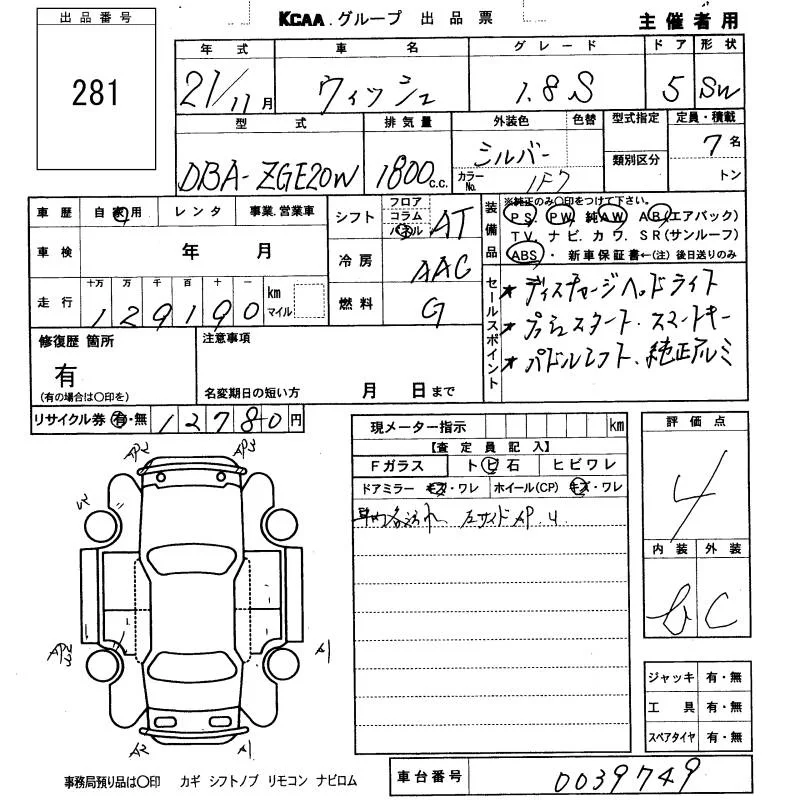 出品番号
281
KCAA.グループ 出品票
主催者用
年式 車名 グレード ドア 形状
21/11月 ウィッシュ 1.8S 5 SW
型式 排気量 外装色 色替 型式指定 定員・積載
DBA-ZGE20W 1800c.c. シルバー 7名
カラーNo. 1F7 類別区分 トン
車歴 自家用 レンタ 事業.営業車
シフト フロア コラム パネル AT
装備品 ※純正のみ〇印をつけて下さい。
PS PW 純AW AB(エアバック)
TV.ナビ.カワ.SR(サンルーフ)
ABS・新車保証書←(注)後日送りのみ
車検 年 月
冷房 AAC
走行 十万 万 千 百 十 km マイル
129190
燃料 G
セールスポイント
*ディスチャージヘッドライト
*プッシュスタート.スマートキー
*パドルシフト.純正アルミ
修復歴 箇所
有
(有の場合は〇印を)
注意事項
名変期日の短い方 月 日まで
リサイクル券 有・無 12780円
現メーター指示 km
【査定員記入】
Fガラス トビ石 ヒビワレ
ドアミラー キズ・ワレ ホイール(CP) キズ・ワレ
左サイドAP.U
評価点
4
内装 外装
b C
AP2 AP3
A1
A2 A1
ジャッキ 有・無
工具 有・無
スペアタイヤ 有・無
事務局預り品は〇印 カギ シフトノブ リモコン ナビロム
車台番号 0039749